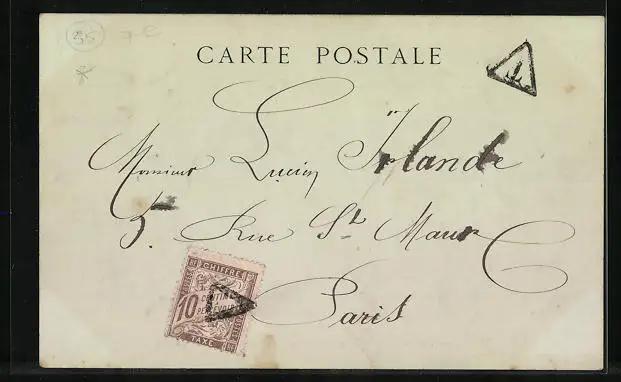 35
CARTE POSTALE
T
Monsieur Lucien Irlande
5. Rue St Maur
Paris
CHIFFRE
10
CENTIMES
PERCEVOIR
TAXE